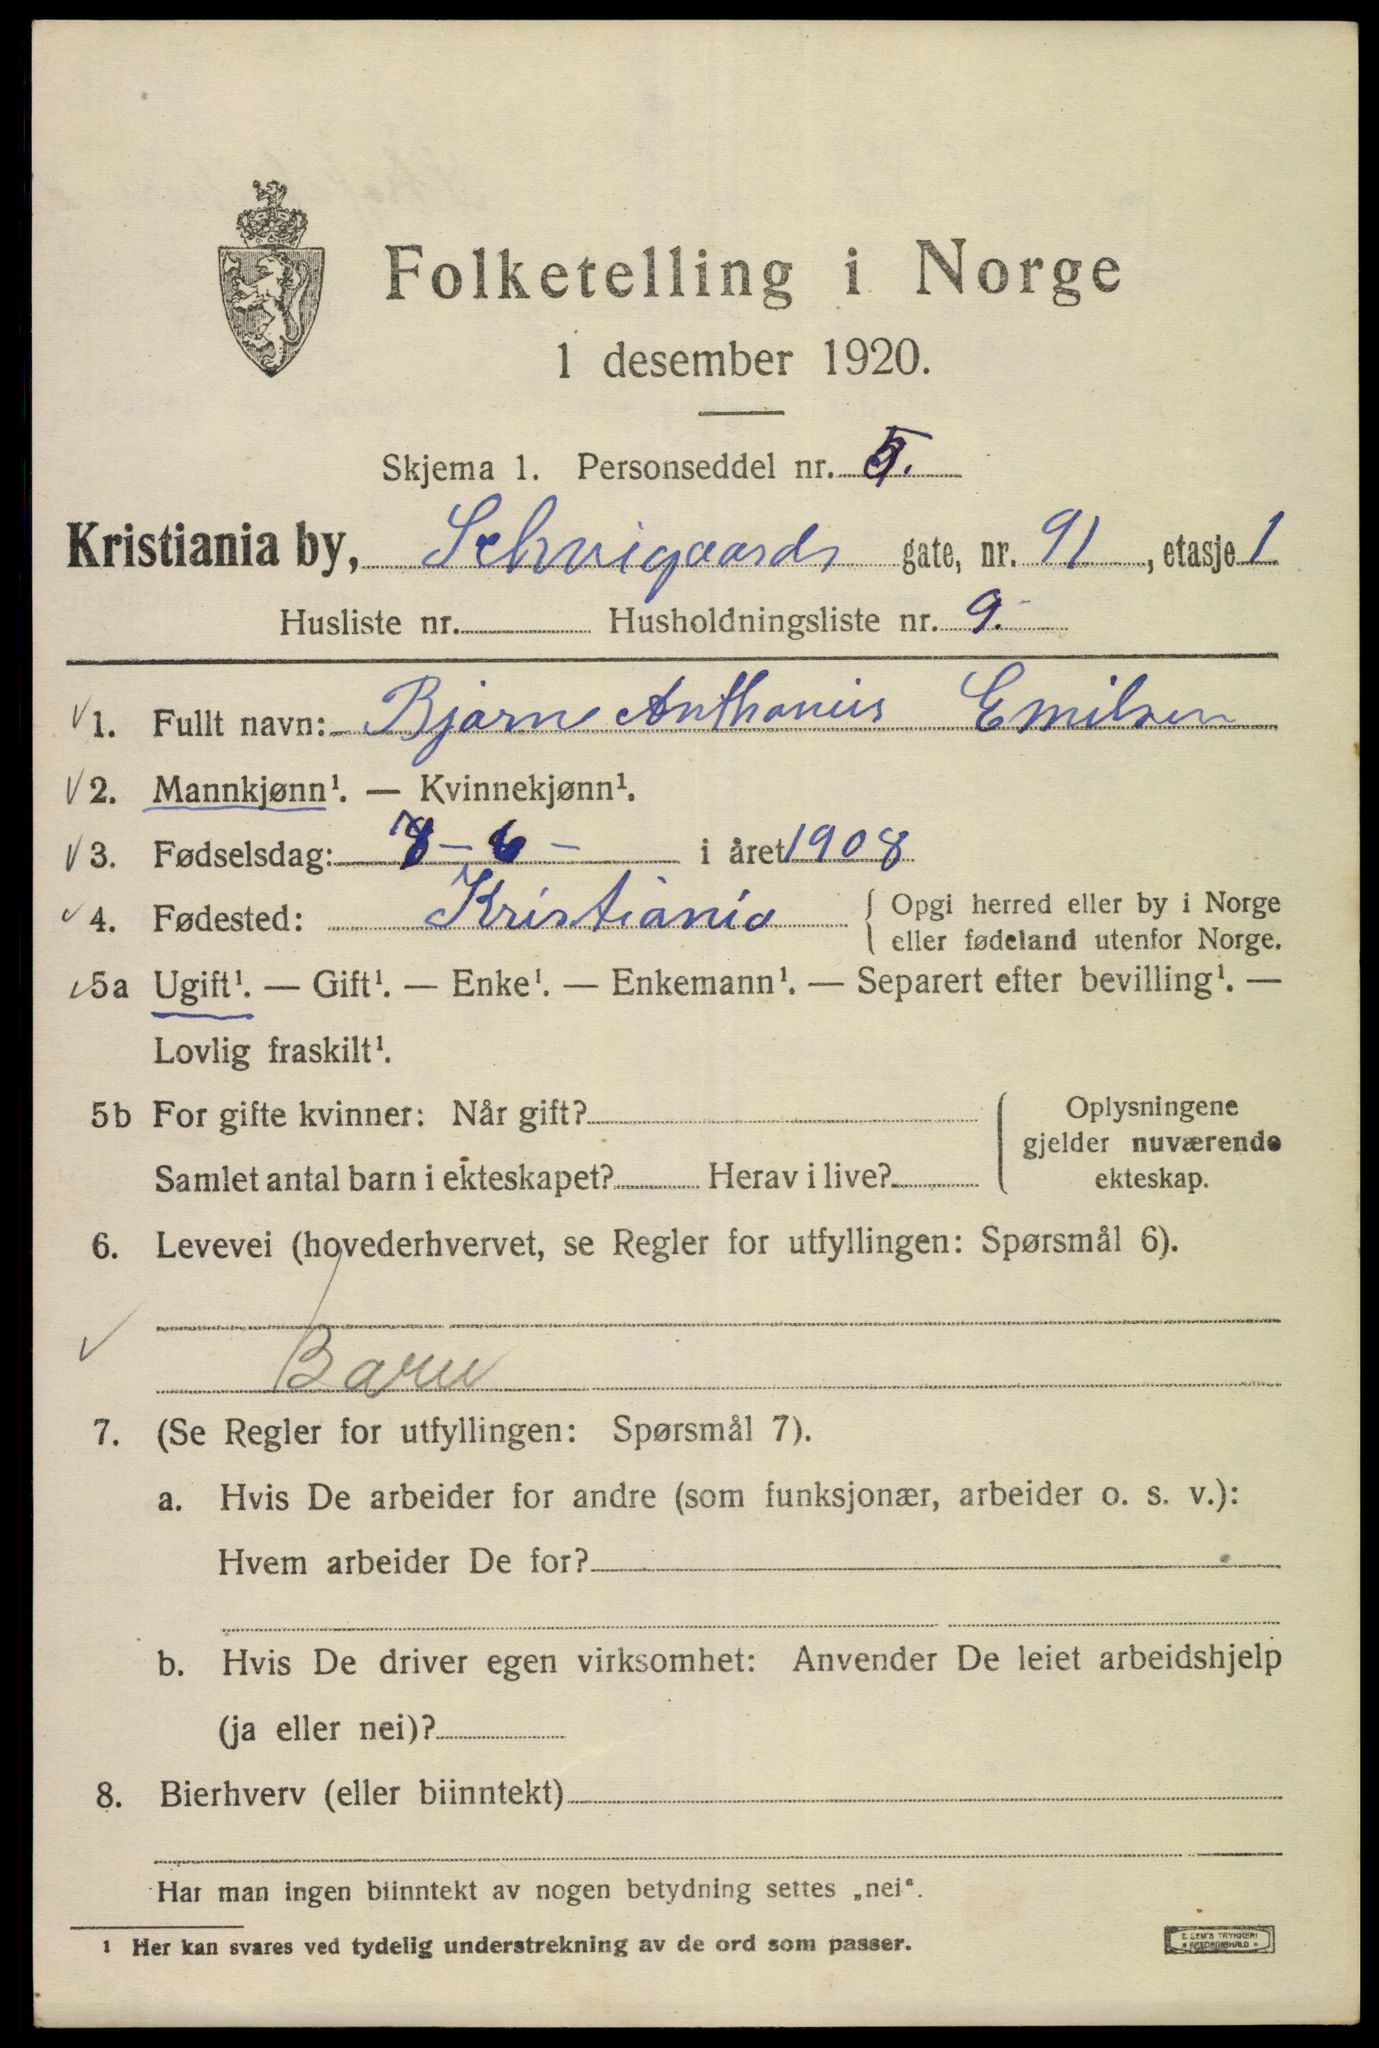 Folketelling i Norge
1 desember 1920.
Skjema 1. Personseddel nr. 5.
Kristiania by, Schvigaards gate, nr. 91, etasje 1
Husliste nr. Husholdningsliste nr. 9.
1. Fullt navn: Bjarne Anthonius Emilsen
2. Mannkjønn¹. — Kvinnekjønn¹.
3. Fødselsdag: 8 - 6 - i året 1908
4. Fødested: Kristiania { Opgi herred eller by i Norge
eller fødeland utenfor Norge.
5a Ugift¹. — Gift¹. — Enke¹. — Enkemann¹. — Separert efter bevilling¹. —
Lovlig fraskilt¹.
5b For gifte kvinner: Når gift? { Oplysningene
gjelder nuværende
Samlet antal barn i ekteskapet? Herav i live? ekteskap.
6. Levevei (hovederhvervet, se Regler for utfyllingen: Spørsmål 6).
Barn
7. (Se Regler for utfyllingen: Spørsmål 7).
a. Hvis De arbeider for andre (som funksjonær, arbeider o. s. v.):
Hvem arbeider De for?
b. Hvis De driver egen virksomhet: Anvender De leiet arbeidshjelp
(ja eller nei)?
8. Bierhverv (eller biinntekt)
Har man ingen biinntekt av nogen betydning settes „nei“.
1 Her kan svares ved tydelig understrekning av de ord som passer.
E SEM'S TRYKKERI
FREDRIKSHALD